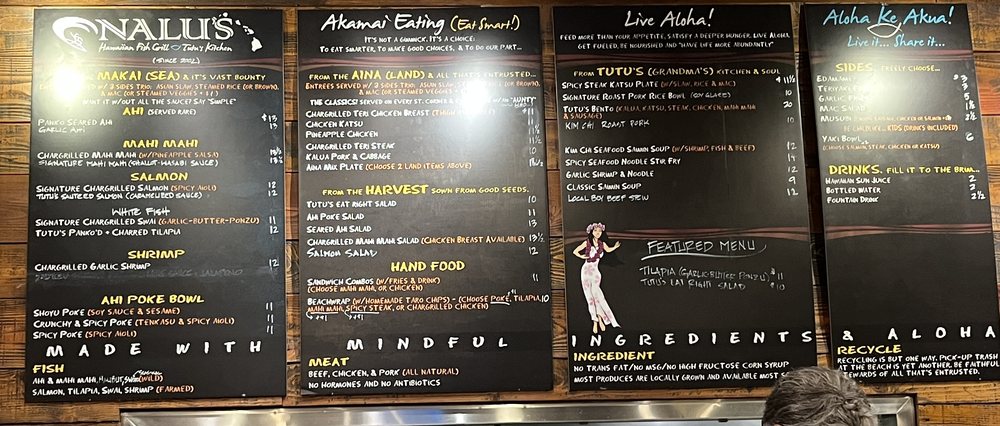 NALU'S
Hawaiian Fish Grill Tutu's Kitchen
(SINCE 2002)
MAKAI (SEA) & IT'S VAST BOUNTY
ENTREES SERVED W/ 2 SIDES TRIO: ASIAN SLAW, STEAMED RICE (OR BROWN),
& MAC (OR STEAMED VEGGIES
WANT IT W/OUT ALL THE SAUCE? SAY "SIMPLE"
AHI (SERVED RARE)
PANKO SEARED AHI $13
GARLIC AHI 13
MAHI MAHI
CHARGRILLED MAHI MAHI (W/PINEAPPLE SALSA) 13½
SIGNATURE MAHI MAHI 13½
SALMON
SIGNATURE CHARGRILLED SALMON (SPICY AIOLI) 12
TUTU'S SAUTEED SALMON (CARAMELIZED SAUCE) 12
WHITE FISH
SIGNATURE CHARGRILLED SWAI (GARLIC-BUTTER-PONZU) 11
TUTU'S PANKO'D + CHARRED TILAPIA 12
SHRIMP
CHARGRILLED GARLIC SHRIMP 12
AHI POKE BOWL
SHOYU POKE (SOY SAUCE & SESAME) 11
CRUNCHY & SPICY POKE (TENKASU & SPICY AIOLI) 11
SPICY POKE (SPICY AIOLI) 11
MADE WITH
FISH
AHI & MAHI MAHI, HALIBUT, (WILD)
SALMON, TILAPIA, SWAI, SHRIMP (FARMED)
Akamai Eating (Eat Smart!)
IT'S NOT A GIMMICK. IT'S A CHOICE:
TO EAT SMARTER, TO MAKE GOOD CHOICES, & TO DO OUR PART...
FROM THE AINA (LAND) & ALL THAT'S ENTRUSTED...
ENTREES SERVED W/ 2 SIDES TRIO: ASIAN SLAW, STEAMED RICE (OR BROWN),
& MAC (OR STEAMED VEGGIES
THE CLASSICS! SERVED ON EVERY ST. CORNER & "AUNTY"
CHARGRILLED TERI CHICKEN BREAST $11
CHICKEN KATSU 11
PINEAPPLE CHICKEN 11
CHARGRILLED TERI STEAK 11
KALUA PORK & CABBAGE 10
AINA MIX PLATE (CHOOSE 2 LAND ITEMS ABOVE)
FROM THE HARVEST SOWN FROM GOOD SEEDS.
TUTU'S EAT RIGHT SALAD 10
AHI POKE SALAD 11
SEARED AHI SALAD 13
CHARGRILLED MAHI MAHI SALAD (CHICKEN BREAST AVAILABLE) 13½
SALMON SALAD 12
HAND FOOD
SANDWICH COMBOS (W/FRIES & DRINK) 11
(CHOOSE MAHI MAHI, OR CHICKEN)
BEACHWRAP (W/HOMEMADE TARO CHIPS) - (CHOOSE POKE, TILAPIA, 10
MAHI MAHI, SPICY STEAK, OR CHARGRILLED CHICKEN)
MINDFUL
MEAT
BEEF, CHICKEN, & PORK (ALL NATURAL)
NO HORMONES AND NO ANTIBIOTICS
Live Aloha!
FEED MORE THAN YOUR APPETITE, SATISFY A DEEPER HUNGER. LIVE ALOHA.
GET FUELED, BE NOURISHED AND "HAVE LIFE MORE ABUNDANTLY"
FROM TUTU'S (GRANDMA'S) KITCHEN & SOUL
SPICY STEAK KATSU PLATE (W/SLAW, RICE & MAC) $11½
SIGNATURE ROAST PORK RICE BOWL (SOY GLAZE) 10
TUTU'S BENTO (KALUA, KATSU, STEAK, CHICKEN, MAHI MAHI 20
& SAUSAGE)
KIM CHI ROAST PORK 10
KIM CHI SEAFOOD SAIMIN SOUP (W/SHRIMP, FISH & BEEF) 12
SPICY SEAFOOD NOODLE STIR FRY 14
GARLIC SHRIMP & NOODLE 12
CLASSIC SAIMIN SOUP 9
LOCAL BOY BEEF STEW 12
FEATURED MENU
TILAPIA (GARLIC-BUTTER PONZU) $11
TUTU'S EAT RIGHT SALAD 10
INGREDIENTS
INGREDIENT
NO TRANS FAT/NO MSG/NO HIGH FRUCTOSE CORN SYRUP
MOST PRODUCES ARE LOCALLY GROWN AND AVAILABLE MOST
Aloha Ke Akua!
Live it... Share it...
SIDES. FREELY CHOOSE...
EDAMAME $3
TERIYAKI 3
GARLIC 5
MAC SALAD
MUSUBI
BE CHILDLIKE... KIDS (DRINKS INCLUDED)
YAKI BOWL 6
(CHOOSE SALMON, STEAK, CHICKEN OR KATSU)
DRINKS. FILL IT TO THE BRIM...
HAWAIIAN SUN JUICE 2
BOTTLED WATER 2
FOUNTAIN DRINK 2½
& ALOHA
RECYCLE
RECYCLING IS BUT ONE WAY. PICK-UP TRASH
AT THE BEACH IS YET ANOTHER. BE FAITHFUL
STEWARDS OF ALL THAT'S ENTRUSTED.